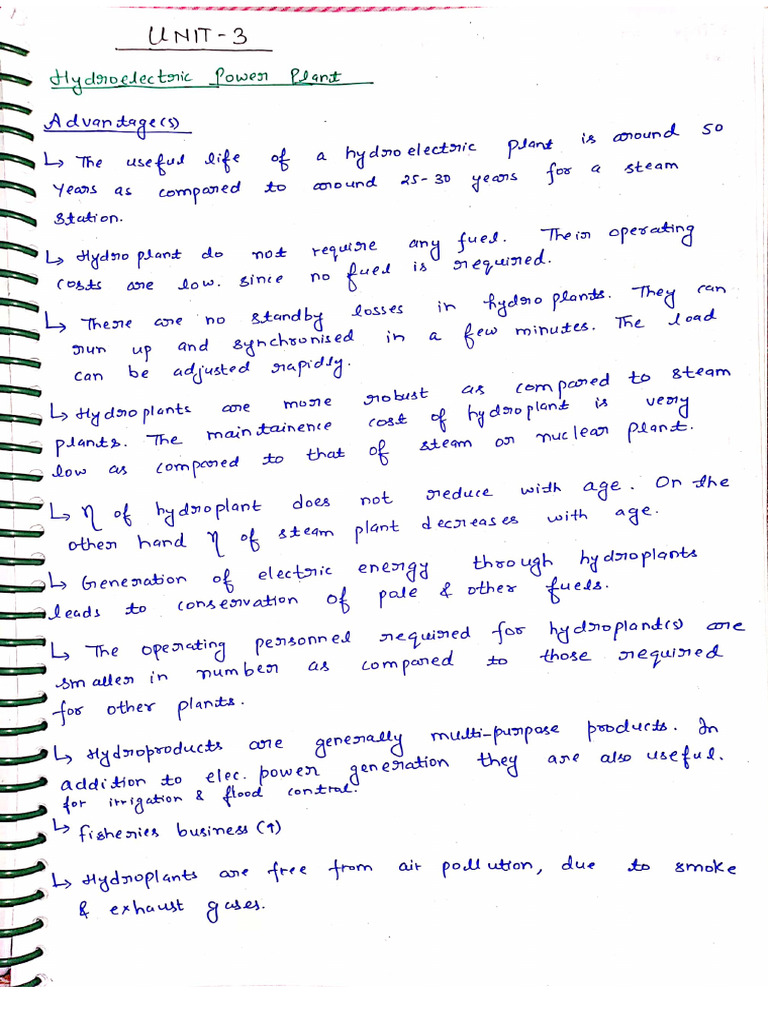 UNIT-3
Hydroelectric Power Plant
Advantage(s)
↳ The useful life of a hydroelectric plant is around 50
Years as compared to around 25-30 years for a steam
station.
↳ Hydroplant do not require any fuel. Their operating
costs are low. since no fuel is required.
↳ There are no standby losses in hydroplants. They can
run up and synchronised in a few minutes. The load
can be adjusted rapidly.
↳ Hydroplants are more robust as compared to steam
plants. The maintainence cost of hydroplant is very
low as compared to that of steam or nuclear plant.
↳ η of hydroplant does not reduce with age. On the
other hand η of steam plant decreases with age.
↳ Generation of electric energy through hydroplants
leads to conservation of pale & other fuels.
↳ The operating personnel required for hydropland(s) are
smaller in number as compared to those required
for other plants.
↳ Hydroproducts are generally multi-purpose products. In
addition to elec. power generation they are also useful.
for irrigation & flood control.
↳ fisheries business (↑)
↳ Hydroplants are free from air pollution, due to smoke
& exhaust gases.